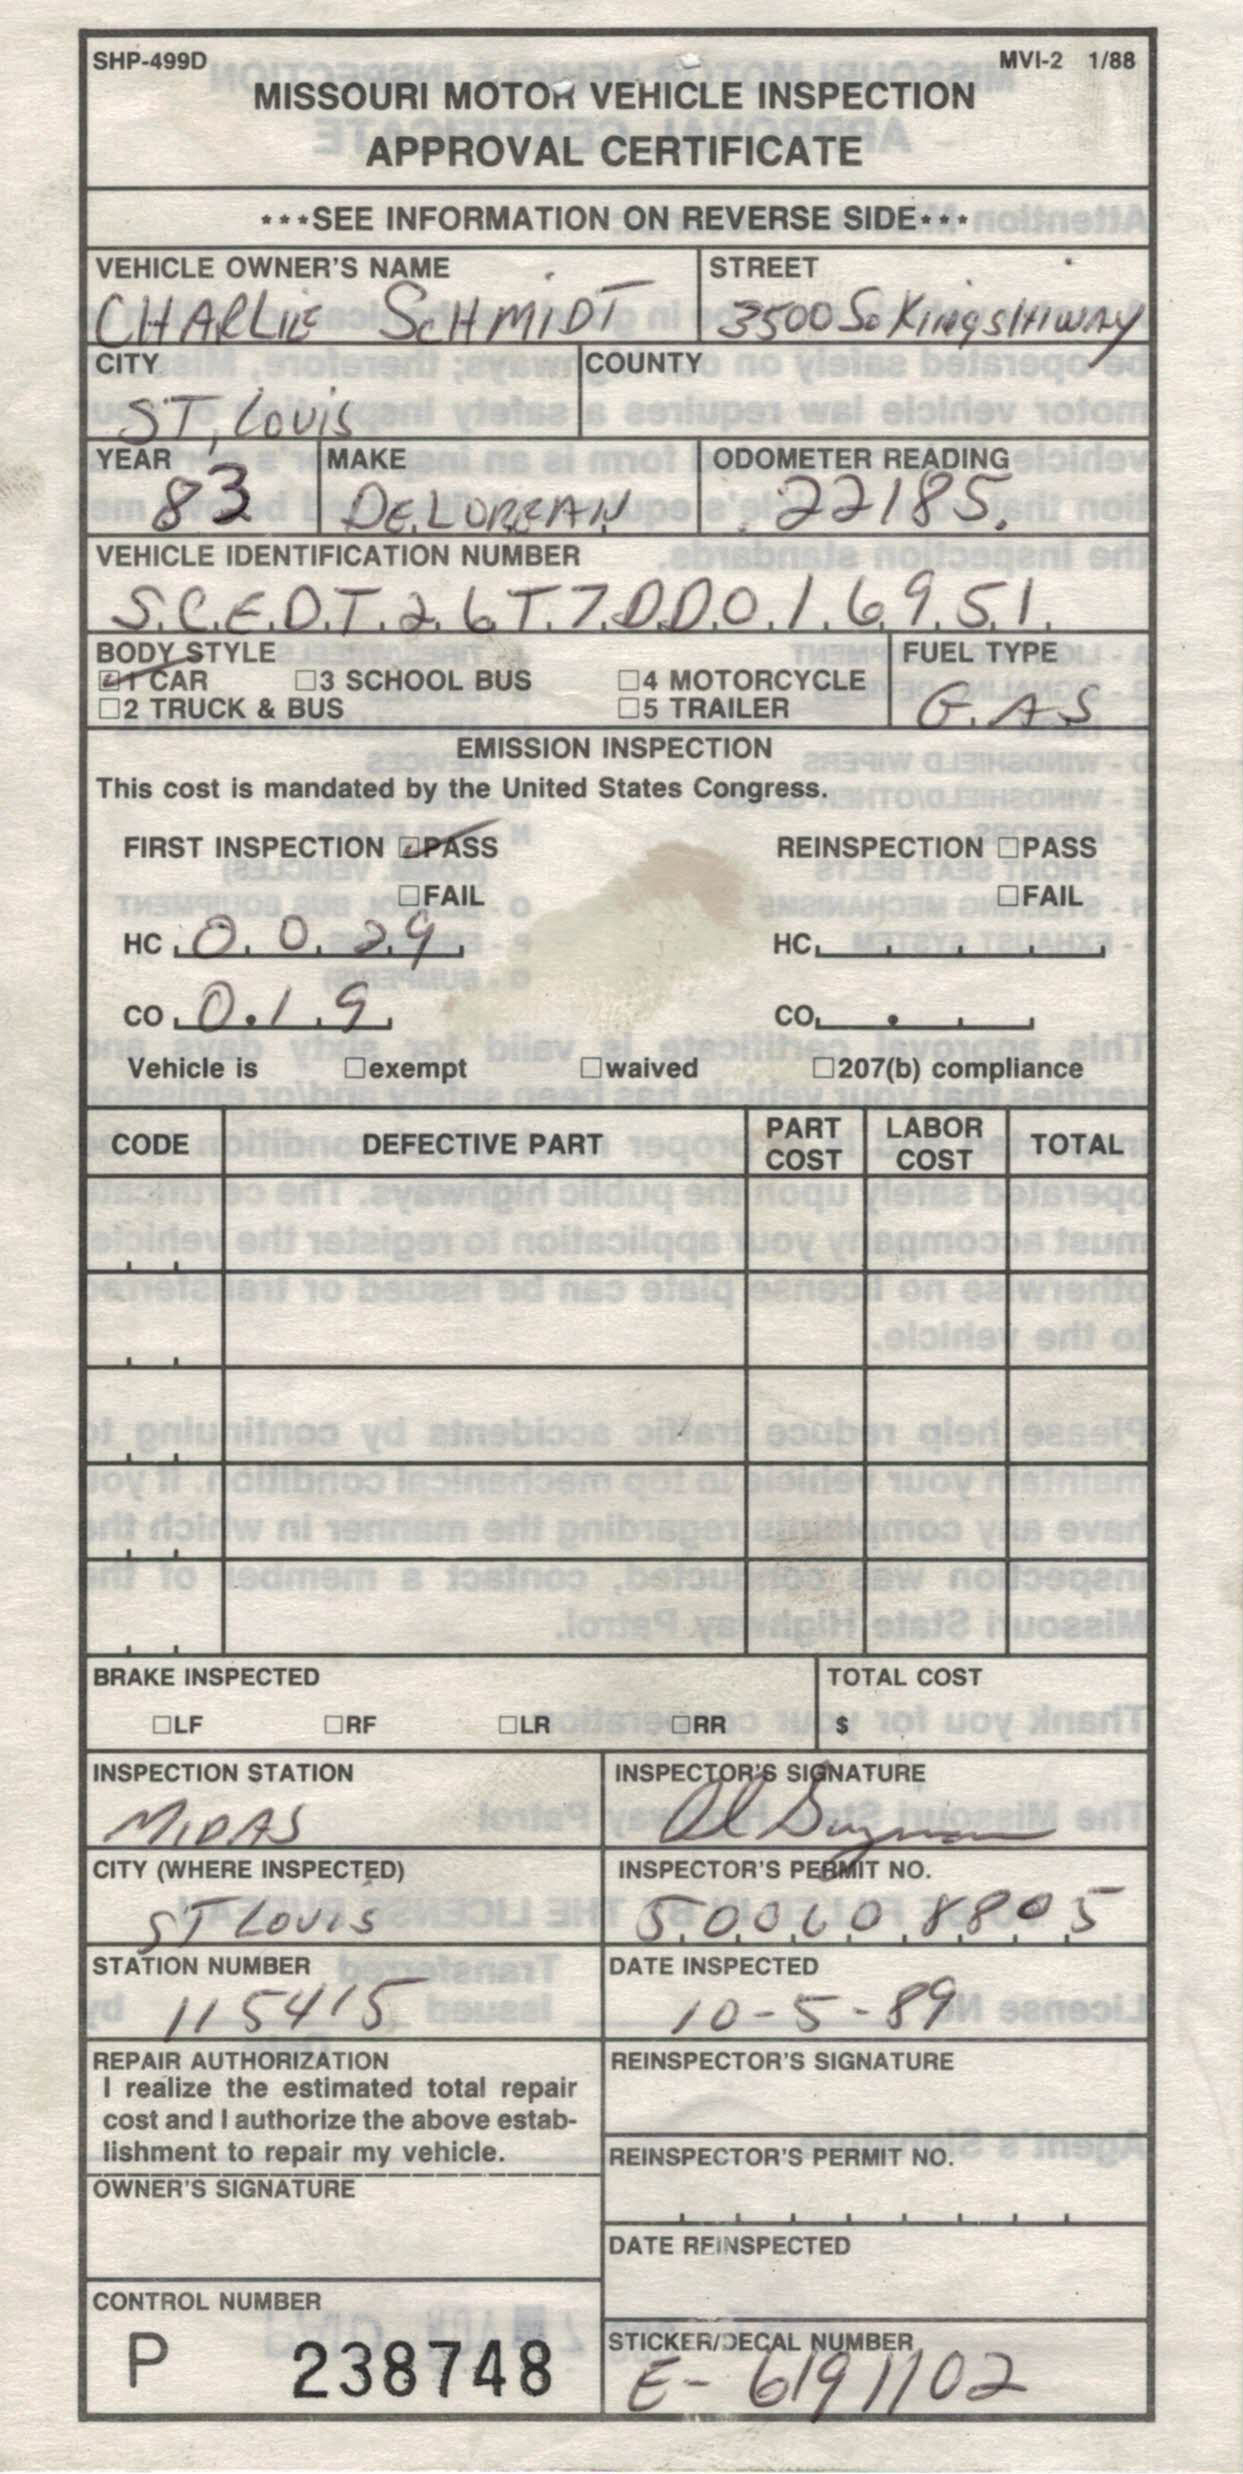 SHP-499D MVI-2 1/88
MISSOURI MOTOR VEHICLE INSPECTION
APPROVAL CERTIFICATE
***SEE INFORMATION ON REVERSE SIDE***
VEHICLE OWNER'S NAME STREET
CHARLIE SCHMIDT 3500 So KingsHiWAY
CITY COUNTY
ST, Louis
YEAR MAKE ODOMETER READING
83 DELOREAN 22185.
VEHICLE IDENTIFICATION NUMBER
S.C.E.D.T.2.6T.7.D.D.0.1.6.9.5.1.
BODY STYLE FUEL TYPE
☑1 CAR ☐3 SCHOOL BUS ☐4 MOTORCYCLE
☐2 TRUCK & BUS ☐5 TRAILER GAS
EMISSION INSPECTION
This cost is mandated by the United States Congress.
FIRST INSPECTION ☑PASS REINSPECTION ☐PASS
☐FAIL ☐FAIL
HC 0.0.29 HC
CO 0.19 CO .
Vehicle is ☐exempt ☐waived ☐207(b) compliance
CODE DEFECTIVE PART PART COST LABOR COST TOTAL
BRAKE INSPECTED TOTAL COST
☐LF ☐RF ☐LR ☐RR $
INSPECTION STATION INSPECTOR'S SIGNATURE
MIDAS
CITY (WHERE INSPECTED) INSPECTOR'S PERMIT NO.
ST Louis
STATION NUMBER DATE INSPECTED
115415 10-5-89
REPAIR AUTHORIZATION REINSPECTOR'S SIGNATURE
I realize the estimated total repair
cost and I authorize the above estab-
lishment to repair my vehicle.
REINSPECTOR'S PERMIT NO.
OWNER'S SIGNATURE
DATE REINSPECTED
CONTROL NUMBER
P 238748
STICKER/DECAL NUMBER
E- 6191102